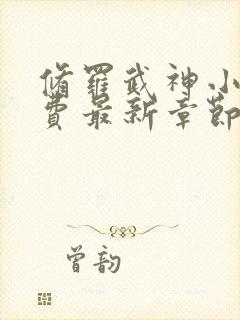 脩羅武神小
費最新章節
曾韵